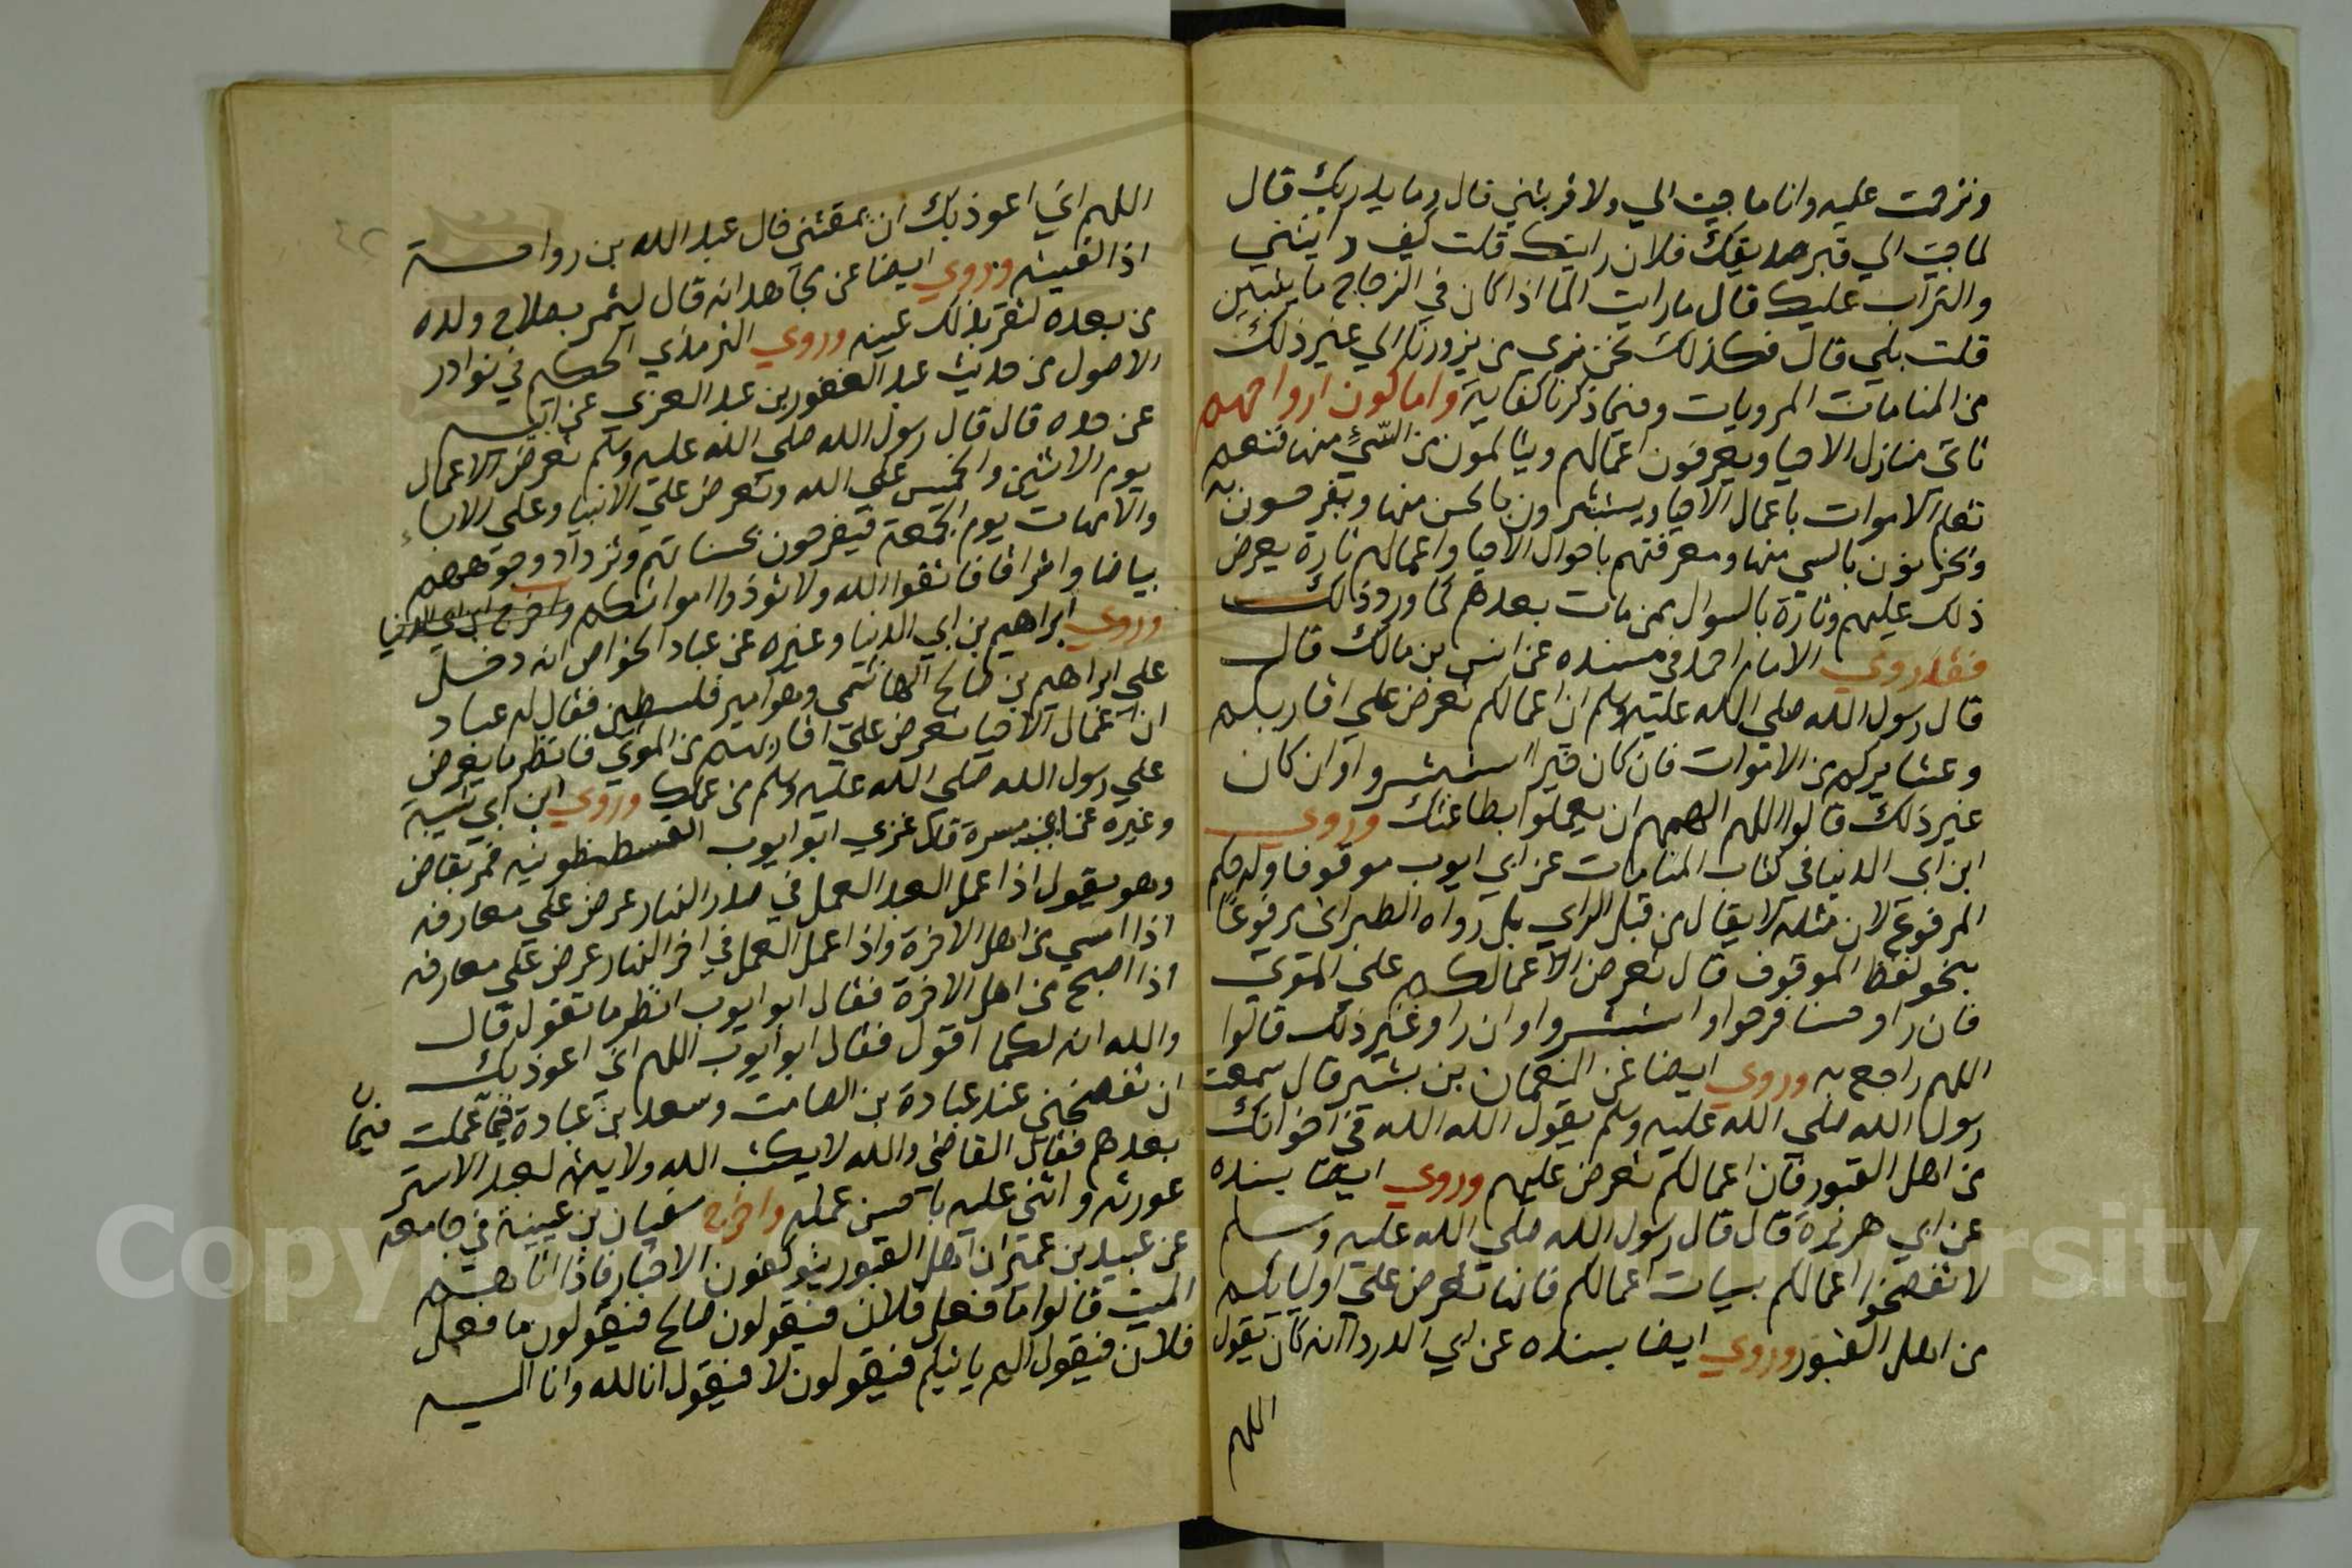 وترحمت عليه وانا ما جيت الي ولا قربتني قال وما يدريك قال
لما جيت الي قبر صديقك فلان رايتك قلت كيف رايتني
والتراب عليك قال ما رايت الما اذا كان في الزجاج ما يتبين
قلت بلي قال فكذلك نحن نري من يزورنا الي غير ذلك
من المنامات المرويات وفيما ذكرنا كفاية واما كون ارواحهم
تاتي منازل الاحيا ويعرفون اعمالهم ويتالمون من السيء منها فنعم
تعلم الاموات باعمال الاحيا ويستبشرون بالحسن منها ويفرحون به
ويحزنون بالسي منها ومعرفتهم باحوال الاحيا واعمالهم تارة يعرض
ذلك عليهم وتارة بالسوال ممن مات بعدهم كما ورد ذلك
فقد روي الامام احمد في مسنده عن انس بن مالك قال
قال رسول الله صلي الله عليه وسلم ان اعمالكم تعرض علي اقاربكم
وعشايركم من الاموات فان كان خيرا استبشروا وان كان
غير ذلك قالوا اللهم الهمهم ان يعملوا بطاعتك وروي
ابن ابي الدنيا في كتاب المنامات عن ابي ايوب موقوفا وله حكم
المرفوع لان مثله لا يقال من قبل الراي بل رواه الطبراني مرفوعا
بنحو لفظ الموقوف قال تعرض الاعمالكم علي الموتي
فان راو حسنا فرحوا واستبشروا وان راو غير ذلك قالوا
اللهم راجع به وروي ايضا عن النعمان بن بشير قال سمعت
رسول الله صلي الله عليه وسلم يقول الله الله في اخوانك
من اهل القبور فان اعمالكم تعرض عليهم وروي ايضا بسنده
عن ابي هريرة قال قال رسول الله صلي الله عليه وسلم
لا تفضحوا اعمالكم بسيات اعمالكم فانها تعرض علي اوليايكم
من اهل القبور وروي ايضا بسنده عن ابي الدردا انه كان يقول
اللهم
اللهم اني اعوذ بك ان يمقتني قال عبد الله بن رواحة
اذا لقيته وروي ايضا عن مجاهد انه قال ليثمر بصلاح ولده
من بعده لتقر بذلك عينه وروي الترمذي الحكيم في نوادر
الاصول من حديث عبد الغفور بن عبد العزي عن ابيه
عن جده قال قال رسول الله صلي الله عليه وسلم تعرض الاعمال
يوم الاثنين والخميس علي الله وتعرض علي الانبيا وعلي الاباء
والامهات يوم الجمعة فيفرحون بحسناتهم وتزداد وجوههم
بياضا واشراقا فاتقوا الله ولا توذوا امواتكم واخرج ابن ابي الدنيا
وروي ابراهيم بن ابي الدنيا وغيره عن عباد الخواص انه دخل
علي ابراهيم بن صالح الهاشمي وهو امير فلسطين فقال له عباد
ان اعمال الاحيا تعرض علي اقاربهم من الموتي فانظر ما يعرض
علي رسول الله صلي الله عليه وسلم من عملك وروي ابن ابي شيبة
وغيره عن ابن ميسرة قال غزي ابو ايوب القسطنطونية فمر بقاض
وهو يقول اذا عمل العبد العمل في صدر النهار عرض علي معارفه
اذا امسي من اهل الاخرة واذا عمل العمل في اخر النهار عرض علي معارفه
اذا اصبح من اهل الاخرة فقال ابو ايوب انظر ما تقول قال
والله انه لكما اقول فقال ابو ايوب اللهم اني اعوذ بك
ان تفضحني عند عبادة بن الصامت وسعد بن عبادة فيما عملت
فيما
بعدهم فقال القاضي والله لا يكتب الله ولايته لعبد الا ستر
عورته واثني عليه باحسن عمله واخرج سفيان بن عيينة في جامعه
عن عبيد بن عمير ان اهل القبور يتوكفون الاخبار فاذا اتاهم
الميت قالوا ما فعل فلان فيقولون صالح فيقولون ما فعل
فلان فيقول الم ياتيكم فيقولون لا فيقول انا لله وانا اليه
Copyright © King Saud University